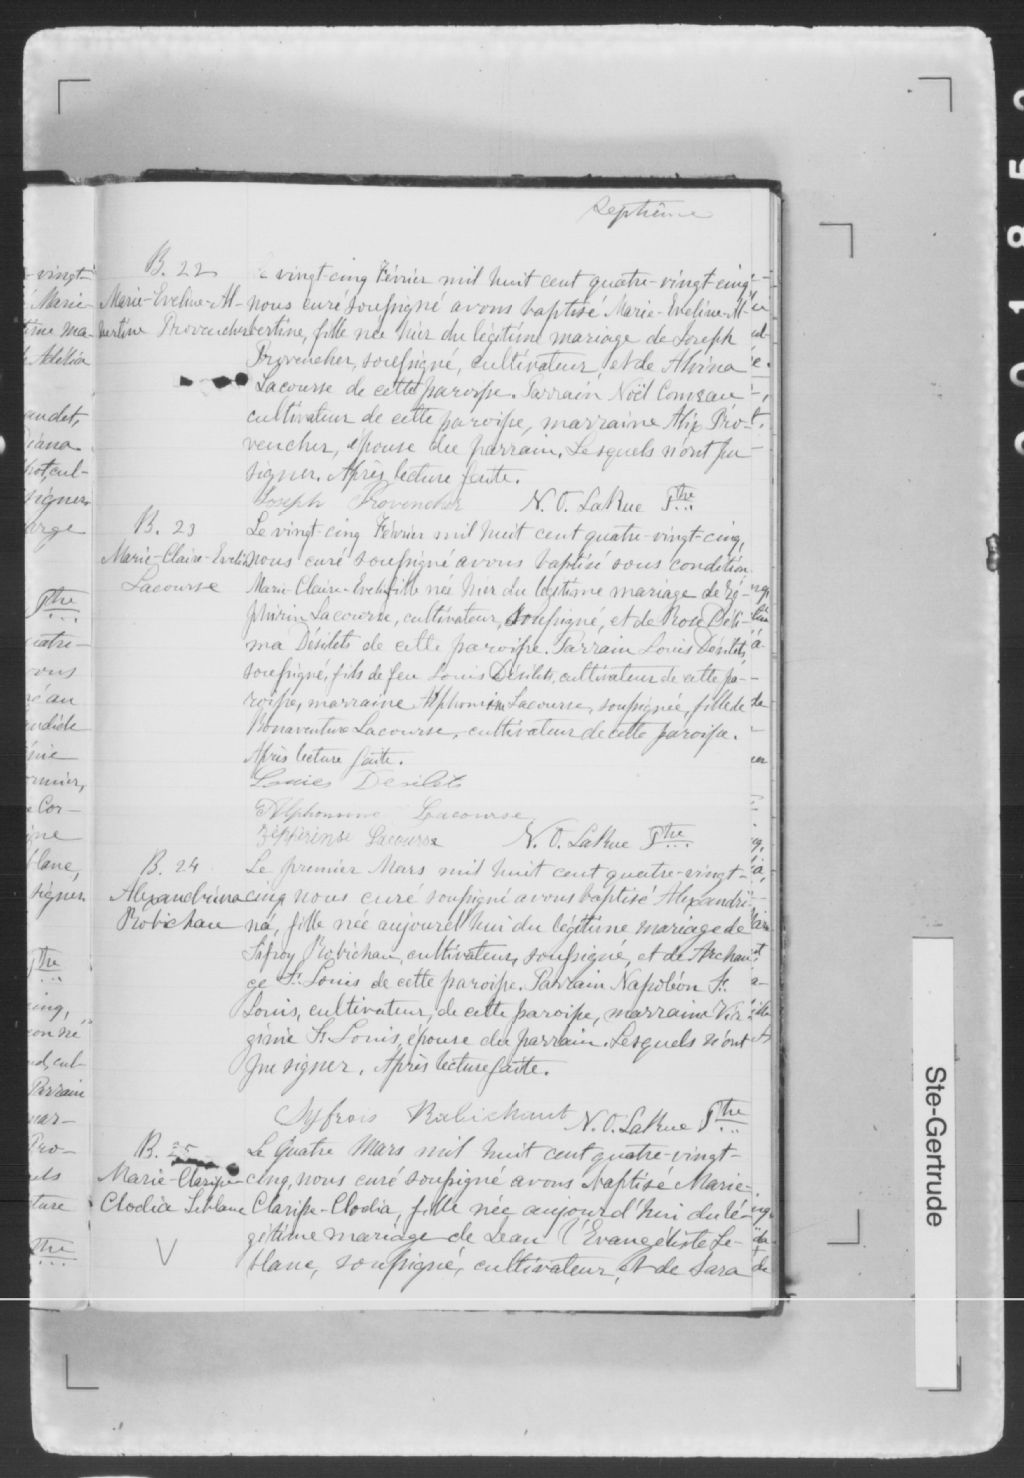 Septième
B. 22
Marie-Eveline-Al-
bertine Provencher
Le vingt-cinq Février mil huit cent quatre-vingt-cinq,
nous curé soussigné avons baptisé Marie-Eveline-Al-
bertine, fille née hier du légitime mariage de Joseph
Provencher, soussigné, cultivateur, et de Alvina
Lacourse de cette paroisse. Parrain Noël Comeau
cultivateur de cette paroisse, marraine Alix Pro-
vencher, épouse du parrain. Lesquels n'ont pu
signer. Après lecture faite.
Joseph Provencher N. O. LaRue Ptre
B. 23
Marie-Claire-Evelin
Lacourse
Le vingt-cinq Février mil huit cent quatre-vingt-cinq,
nous curé soussigné avons baptisé sous condition
Marie-Claire-Evelin fille née hier du légitime mariage de Zé-
phirin Lacourse, cultivateur, soussigné, et de Rose Déli-
ma Désilets de cette paroisse. Parrain Louis Désilets,
soussigné, fils de feu Louis Désilets, cultivateur de cette pa-
roisse, marraine Alphonsine Lacourse, soussignée, fille de
Bonaventure Lacourse, cultivateur de cette paroisse.
Après lecture faite.
Louis Desilets
Alphonsine Lacourse
Zépherinse Lacourse N. O. LaRue Ptre
B. 24
Alexandrina
Robichau
Le premier Mars mil huit cent quatre-vingt-
cinq nous curé soussigné avons baptisé Alexandri-
na, fille née aujourd'hui du légitime mariage de
Sifroy Robichau, cultivateur, soussigné, et de Archan-
ge St. Louis de cette paroisse. Parrain Napoléon St.
Louis, cultivateur, de cette paroisse, marraine Vir-
ginie St. Louis, épouse du parrain. Lesquels n'ont
pu signer. Après lecture faite.
Syfrois Robichaut N. O. LaRue Ptre
B. 25
Marie-Clarisse-
Clodia Leblanc
Le quatre Mars mil huit cent quatre-vingt-
cinq, nous curé soussigné avons baptisé Marie-
Clarisse-Clodia, fille née aujourd'hui du lé-
gitime mariage de Jean l'Evangéliste Le-
blanc, soussigné, cultivateur, et de Sara
Ste-Gertrude